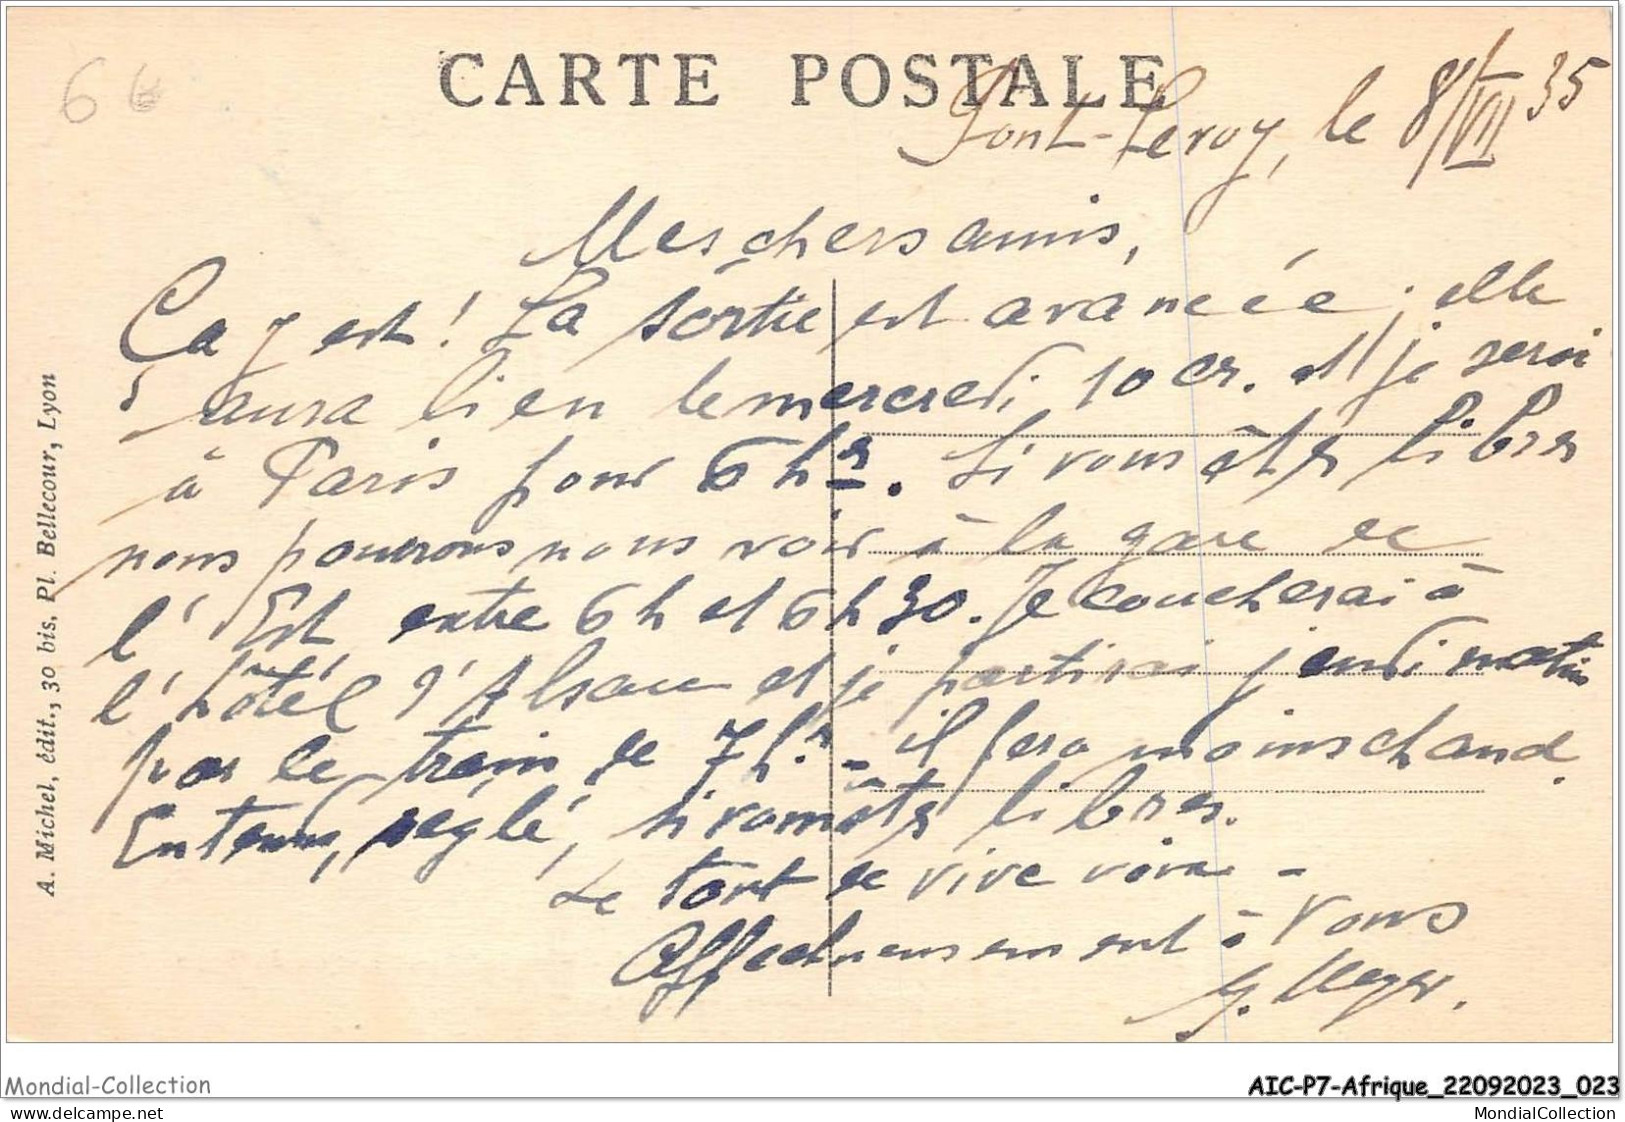 66
CARTE POSTALE
Pont-Leroy, le 8/VII 35
Mes chers amis,
Ça y est ! La sortie est avancée ; elle
aura lieu le mercredi 10 cr. et je serai
à Paris pour 6 hrs. Si vous êtes libres
nous pourrons nous voir à la gare de
l'Est entre 6 h et 6 h 30. Je coucherai à
l'hôtel d'Alsace et je partirai jeudi matin
par le train de 7 hrs - il fera moins chaud.
Entendu, réglé, si vous êtes libres.
Le tout de vive voix -
Affectueusement à vous
G. Meyer.
A. Michel, édit., 30 bis, Pl. Bellecour, Lyon
Mondial-Collection
delcampe.net
AIC-P7-Afrique_22092023_023
MondialCollection